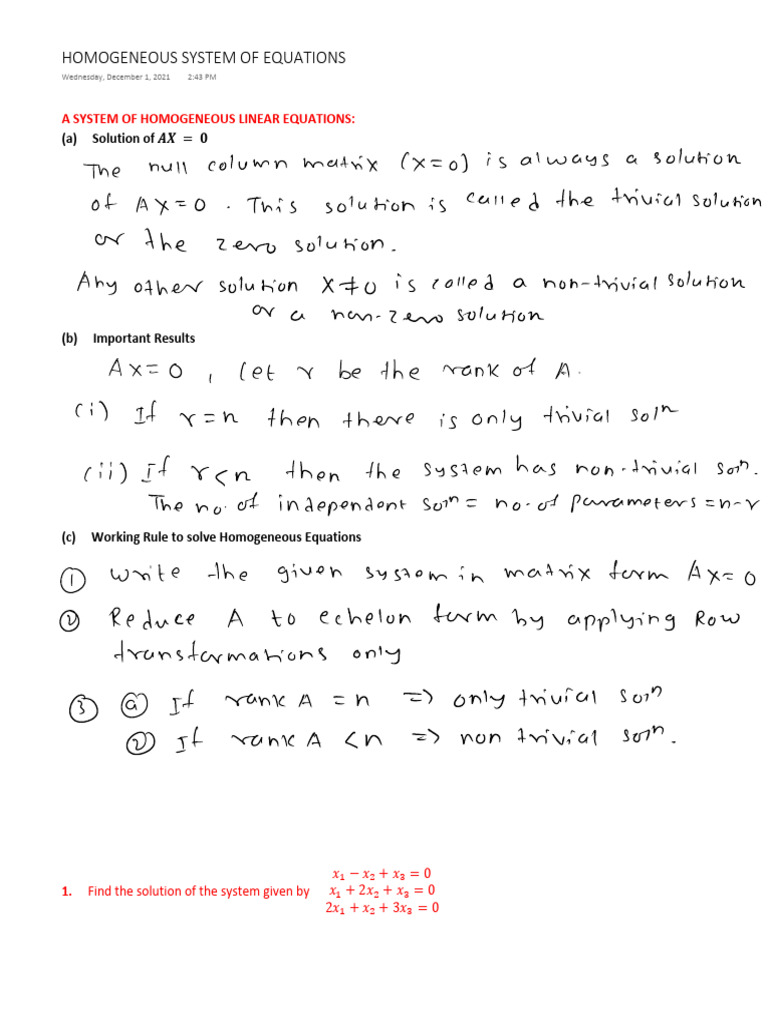 HOMOGENEOUS SYSTEM OF EQUATIONS
Wednesday, December 1, 2021 2:43 PM
A SYSTEM OF HOMOGENEOUS LINEAR EQUATIONS:
(a) Solution of AX = 0
The null column matrix (X=0) is always a solution
of AX=0. This solution is called the trivial solution
or the zero solution.
Any other solution X≠0 is called a non-trivial solution
or a non-zero solution
(b) Important Results
AX=0, let r be the rank of A.
(i) If r=n then there is only trivial solⁿ
(ii) If r<n then the system has non-trivial solⁿ.
The no. of independent solⁿ = no. of parameters = n-r
(c) Working Rule to solve Homogeneous Equations
① Write the given system in matrix form AX=0
② Reduce A to echelon form by applying Row
transformations only
③ ⓐ If rank A = n => only trivial solⁿ
② If rank A < n => non trivial solⁿ.
x₁ − x₂ + x₃ = 0
1. Find the solution of the system given by x₁ + 2x₂ + x₃ = 0
2x₁ + x₂ + 3x₃ = 0